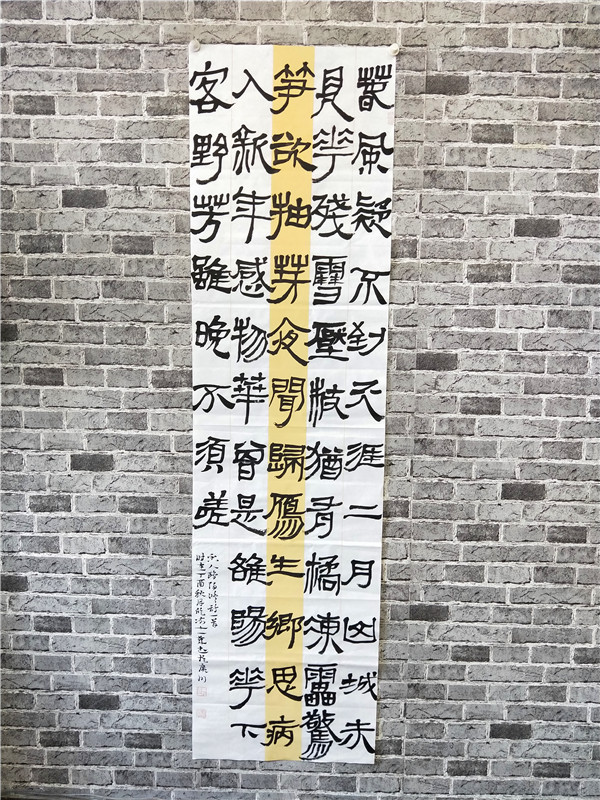 萅風疑不到天涯二月山城未
見花殘雪壓枝猶有橘凍靁驚
笋欲抽芽夜聞歸鴈生鄉思病
入新年感物華曾是雒陽花下
客野芳雖晚不須嗟
宋人歐陽修詩一首
丁酉秋月